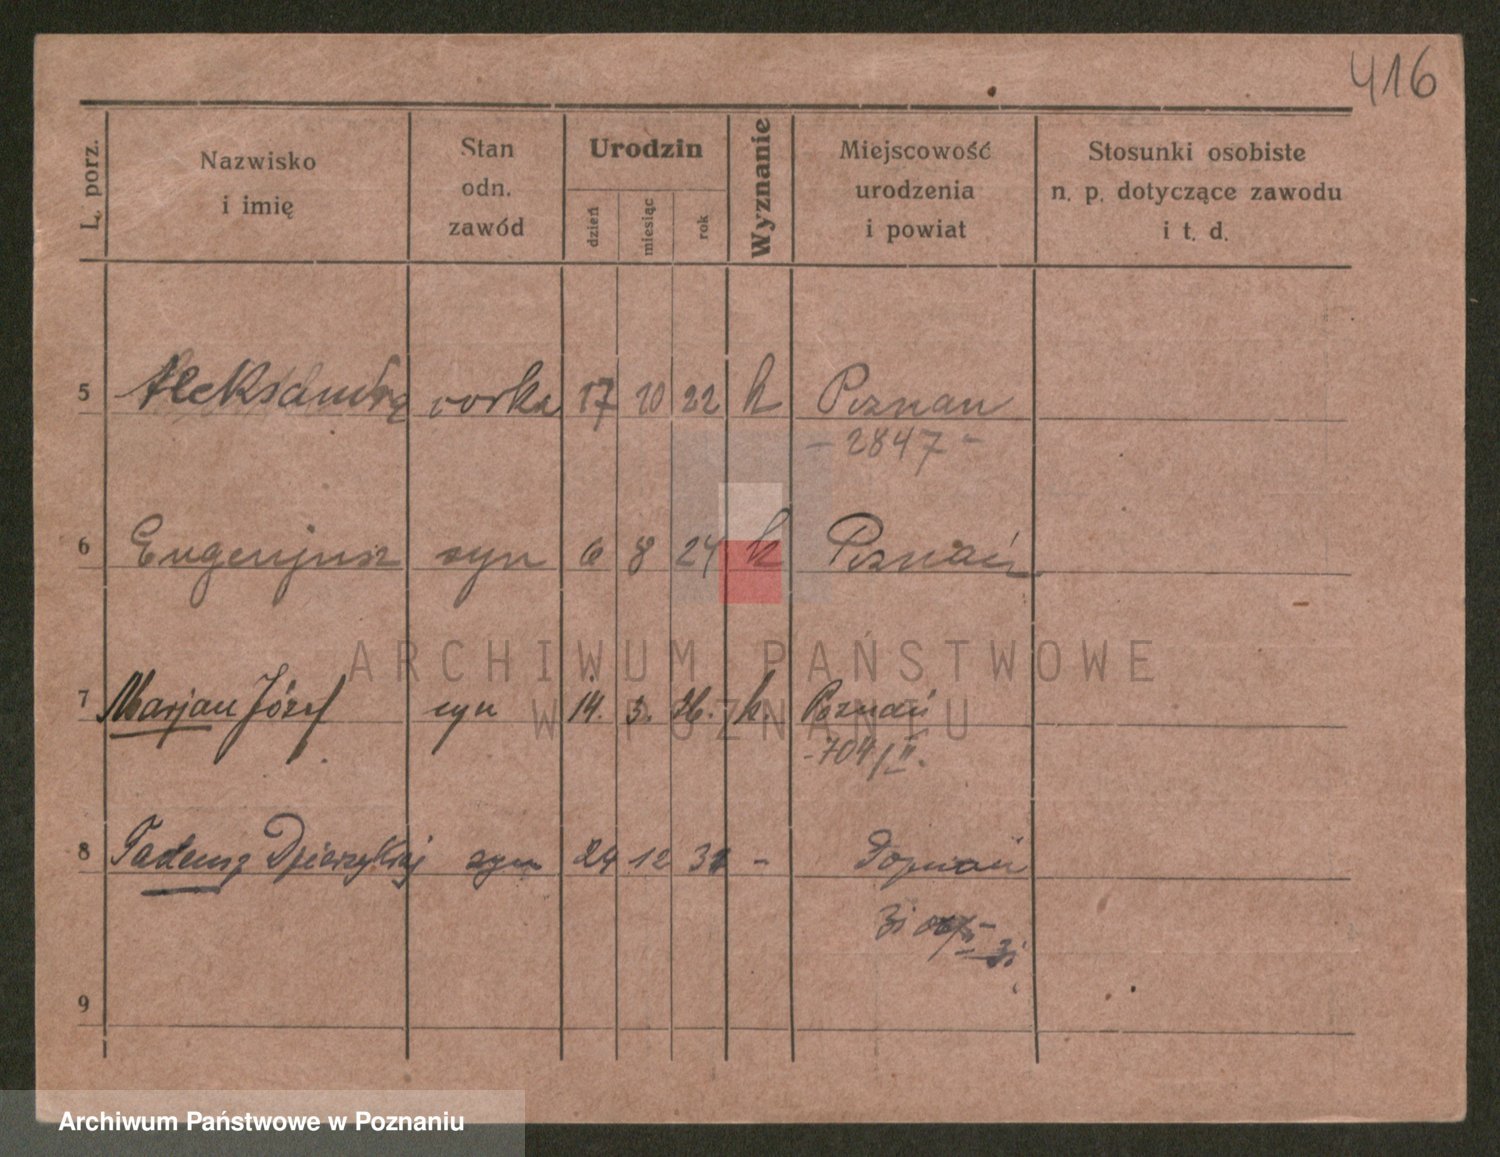 416
L. porz.
Nazwisko
i imię
Stan
odn.
zawód
Urodzin
dzień
miesiąc
rok
Wyznanie
Miejscowość
urodzenia
i powiat
Stosunki osobiste
n. p. dotyczące zawodu
i t. d.
5 Aleksandra corka 17 10 22 k Poznan
- 2847 -
6 Eugenjusz syn 6 8 24 k Poznań
ARCHIWUM PAŃSTWOWE
W POZNANIU
7 Marjan Józef syn 14. 3. 26. k. Poznań
-704/II.
8 Tadeusz syn 24 12 31 - Poznań
9
Archiwum Państwowe w Poznaniu